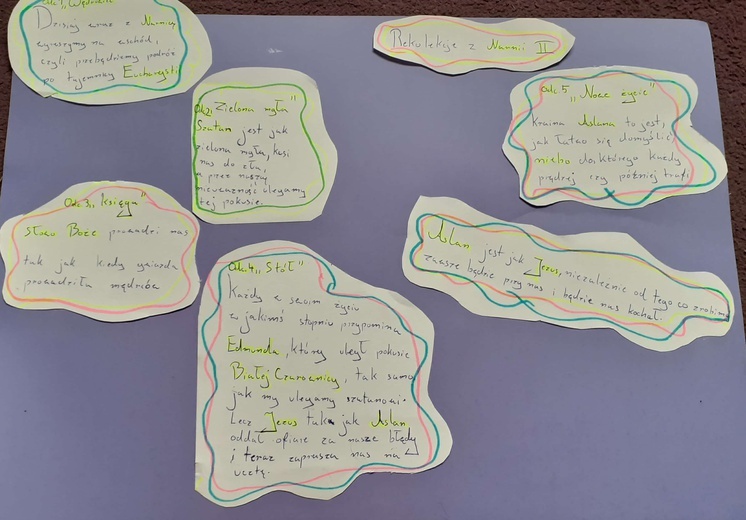 Rekolekcje z Narnii II
Odc. 1 „Wędrowiec"
Dzisiaj wraz z Narnią
wyruszymy na wschód,
czyli przebędziemy podróż
po tajemnicy Eucharystii
Odc. 2 „Zielona mgła"
Szatan jest jak
zielona mgła, kusi
nas do zła,
a przez naszą
nieuważność ulegamy
tej pokusie.
Odc. 3 „Księga"
Słowo Boże prowadzi nas
tak jak kiedyś gwiazda
prowadziła mędrców.
Odc. 4 „Stół"
Każdy w swoim życiu
w jakimś stopniu przypomina
Edmunda, który uległ pokusie
Białej Czarownicy, tak samo
jak my ulegamy szatanowi.
Lecz Jezus tak jak Aslan,
oddał ofiarę za nasze błędy
i teraz zaprasza nas na
ucztę.
Odc. 5 „Nowe życie"
Kraina Aslana to jest,
jak łatwo się domyślić
niebo do którego każdy
prędzej czy później trafi
Aslan jest jak Jezus, niezależnie od tego co zrobimy
zawsze będzie przy nas i będzie nas kochał.